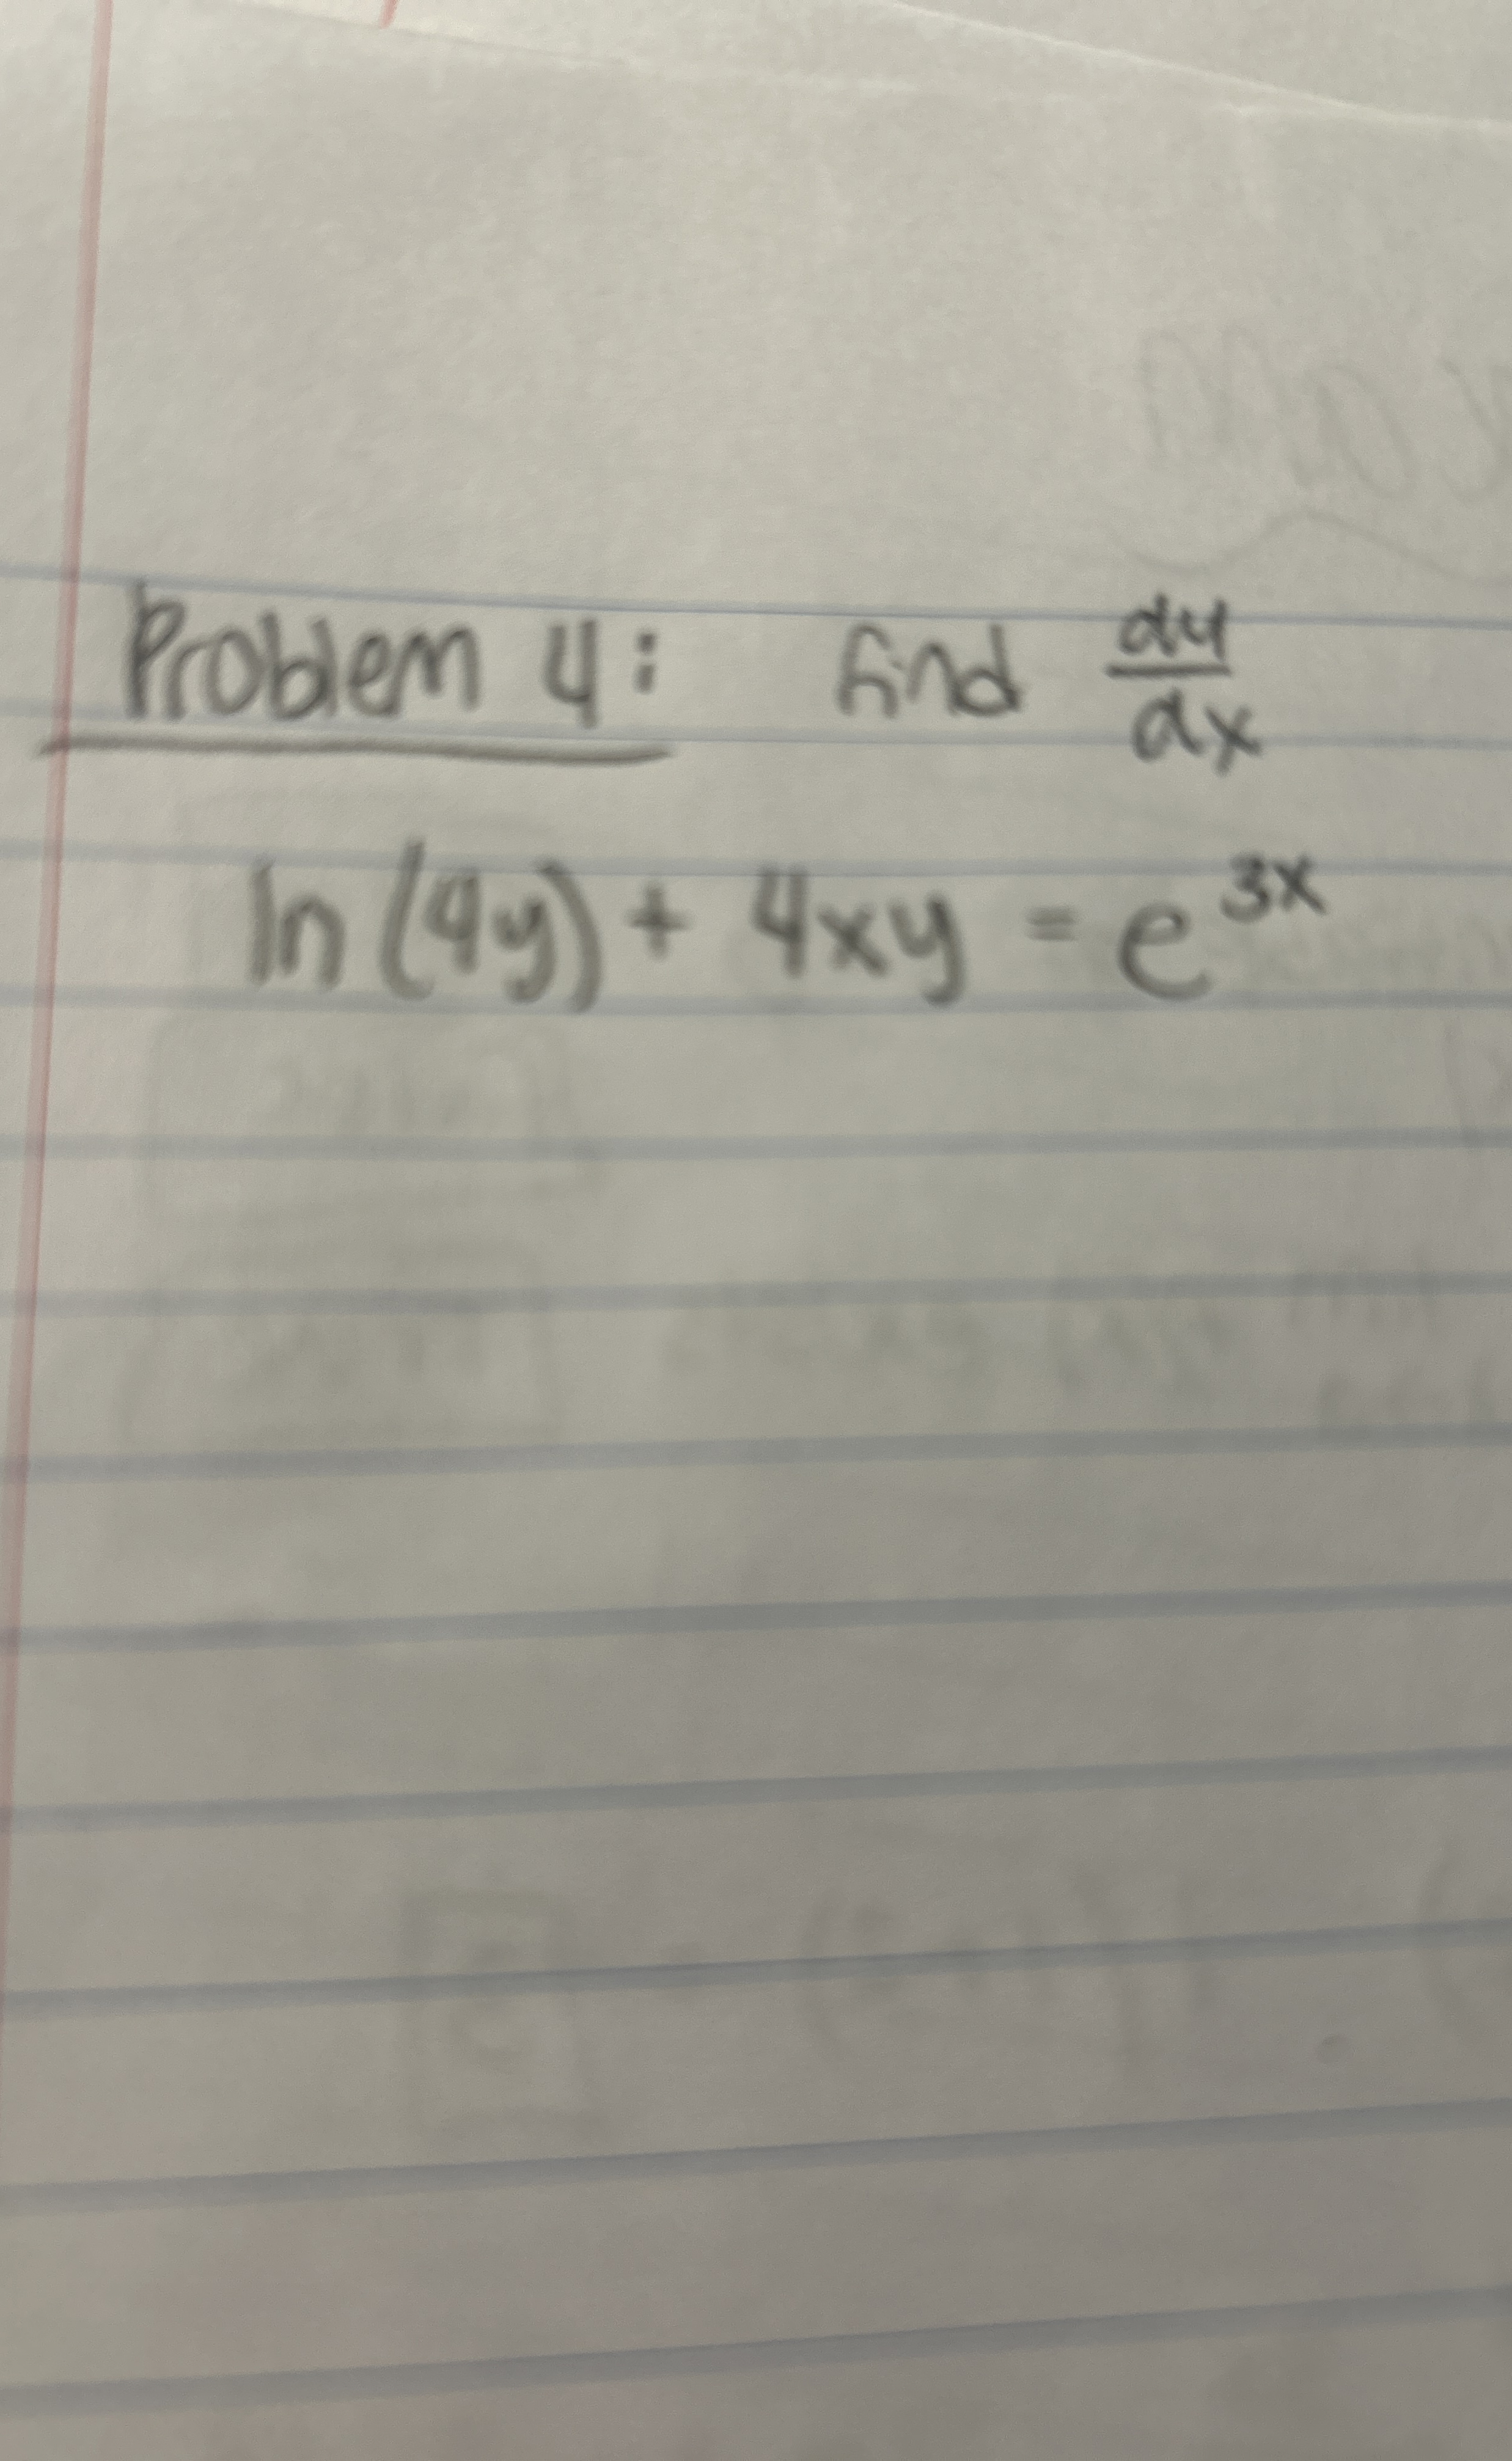 Problem 4: find dy/dx
ln(4y) + 4xy = e^3x